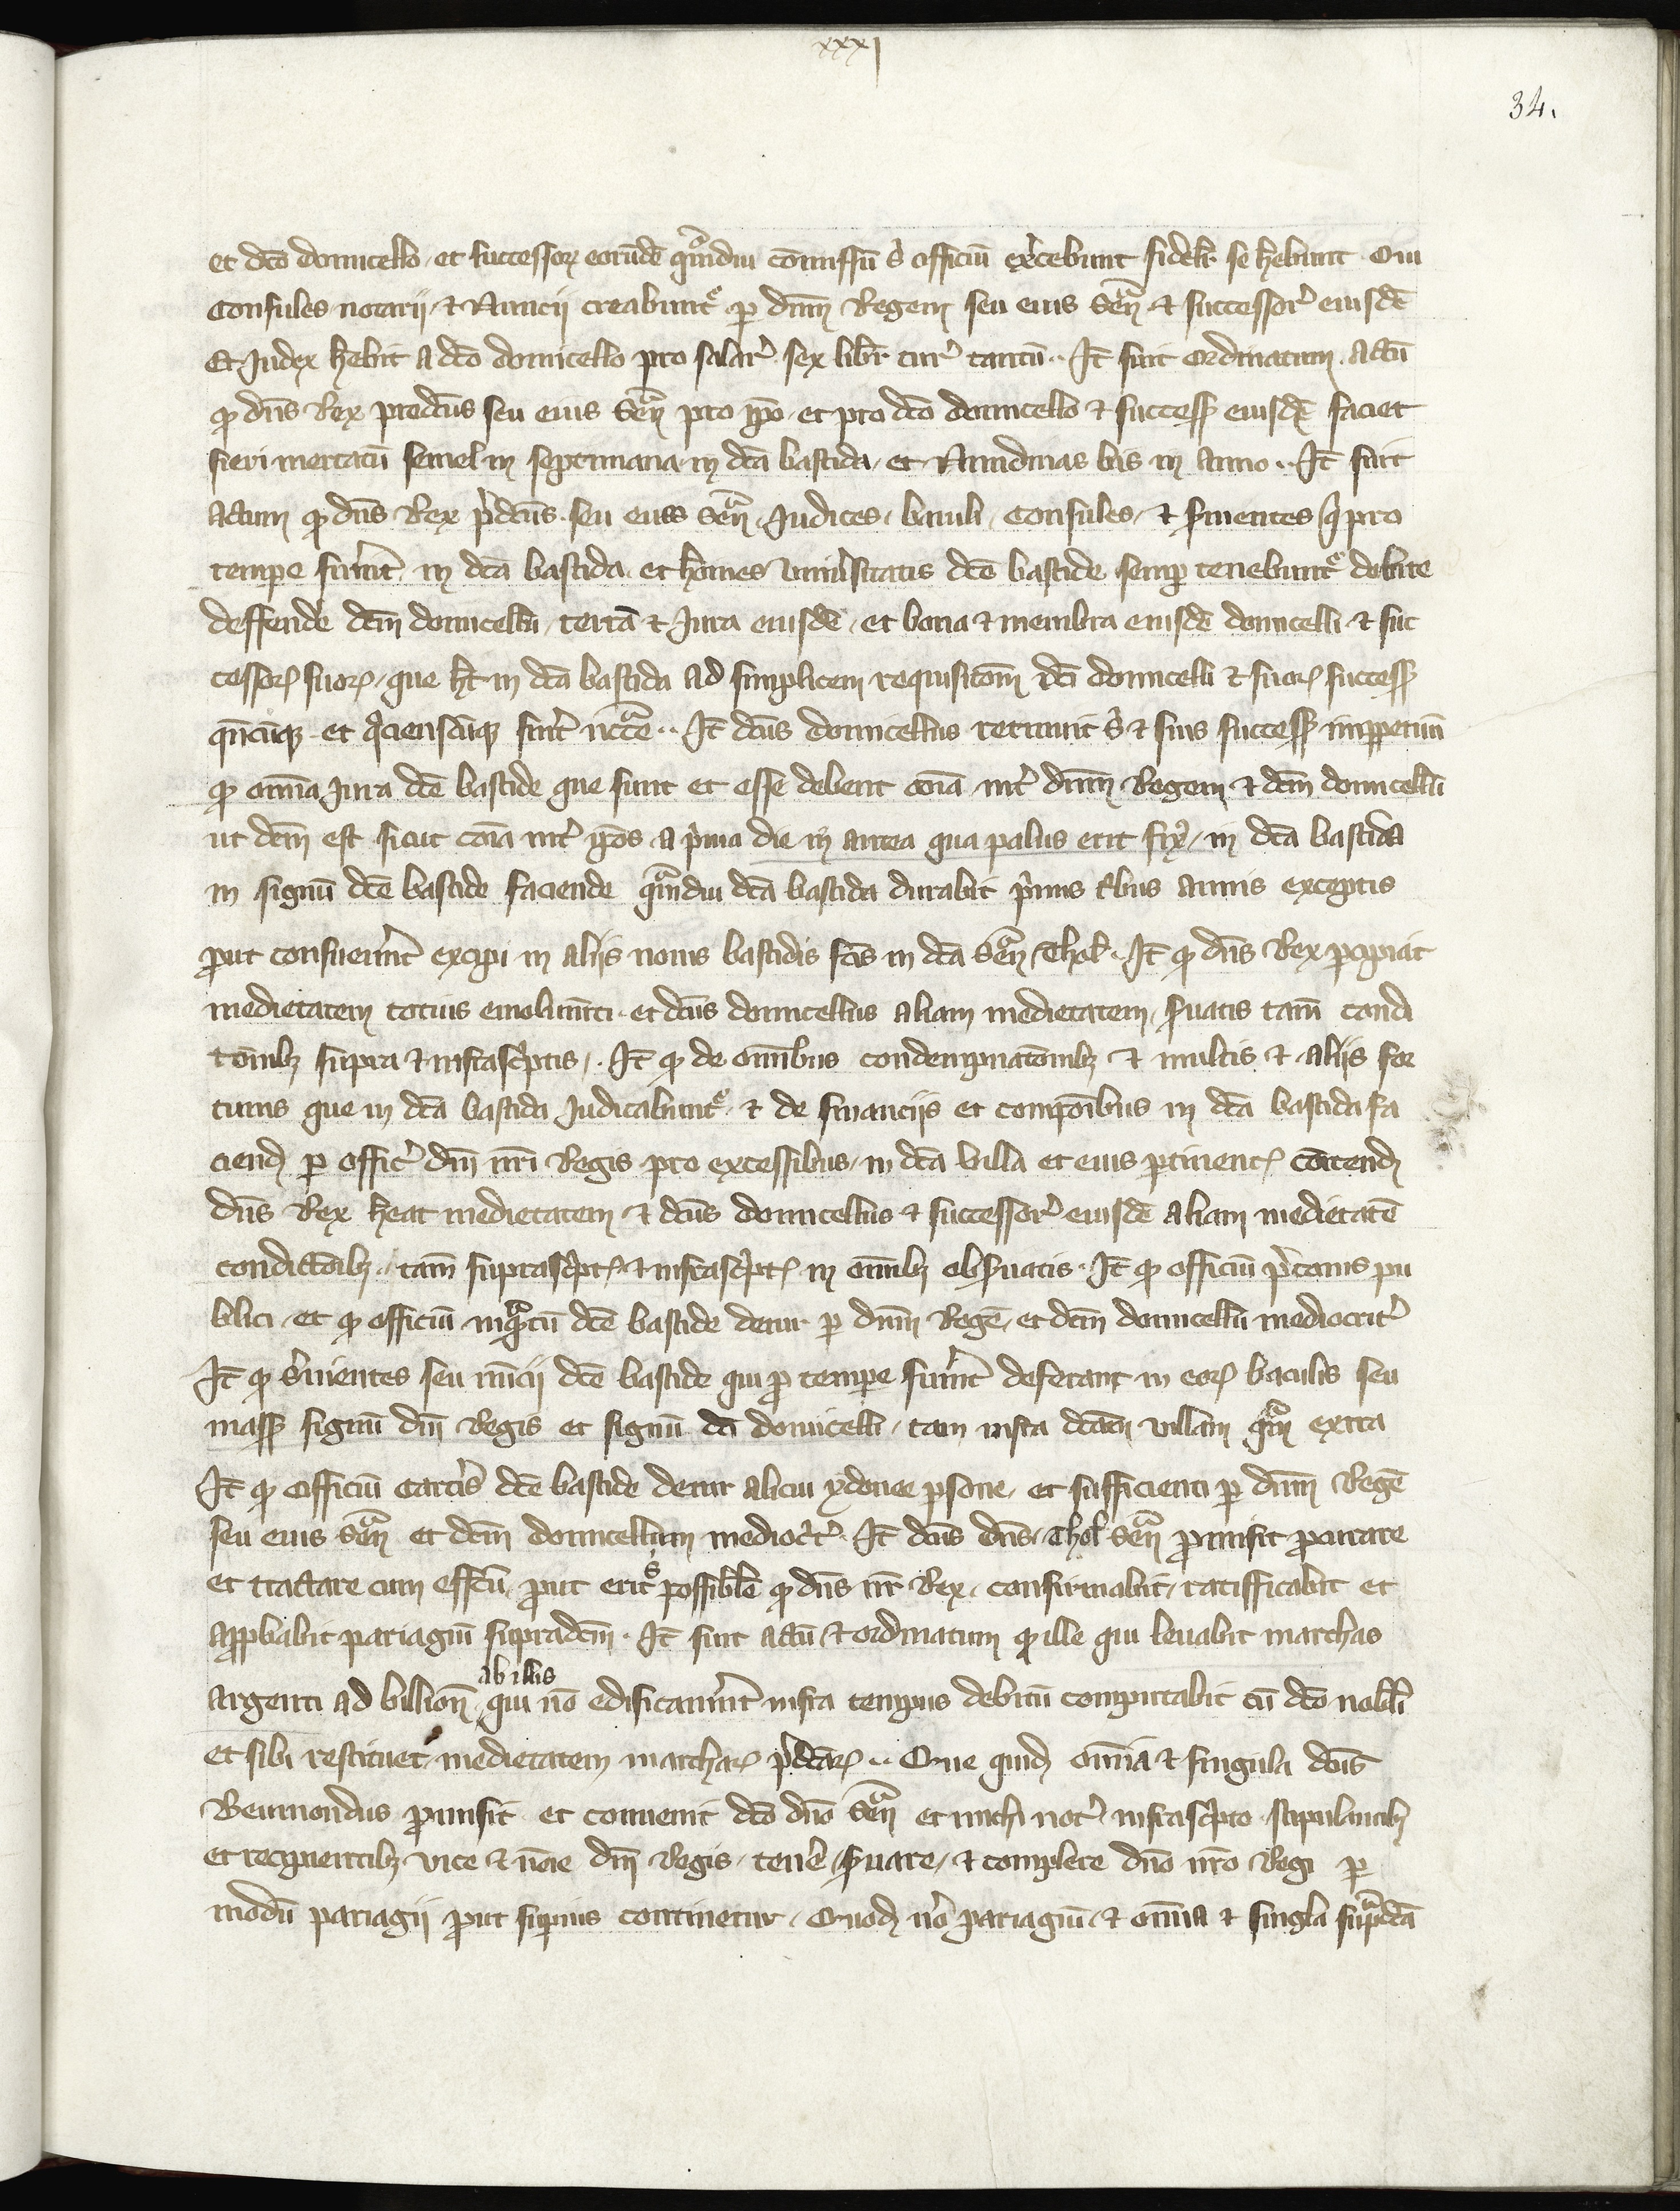 xxxj
34.
et dc̄o domicello et successoꝝ eorūdē qͣmdiu cōmissū sⁱ officiū exͥcebunt fidelr̄ se hēbunt Qui
consules notarii ⁊ Nuncii creabuntᷣ ꝑ dn̄m Regem seu eius Seͣn ⁊ successor᾽ eiusdē
Et Judex hēbit a dc̄o domicello pro salar᾽ sex libr᾽ tur᾽ tantū Jt̄ fuit ordinatum actū
ꝙ dn̄s Rex predc̄us seu eius Seͣn pro ip̄o et pro dc̄o domicello ⁊ success̄ eiusdē faciet
fieri mercatū semel in septimana in dc̄a bastida et Nundinas bis in Anno Jt̄ fuit
actum ꝙ dn̄s Rex p̄dc̄us seu eius Seͣn Judices bauli consules ⁊ s̄uientes q̄ pro
tempe fuer̄nt in dc̄a bastida et hōines vniūsitatis dc̄e bastide semꝑ tenebuntᷣ debite
deffende dc̄m domicellū terrā ⁊ Jura eiusdē et bona ⁊ membra eiusdē domicelli ⁊ suc
cessoꝝ suoꝝ que ht̄ in dc̄a bastida ad simplicem requisitōm dc̄i domicelli ⁊ suoꝝ success̄
qn̄cūqꝫ et qͦciensc̄ūqꝫ fu̅it nc̄ce Jt̄ dc̄us domicellus retinuit sⁱ ⁊ suis success̄ imꝑpetuū
ꝙ om̄ia Jura dc̄e bastide que sunt et esse debent cōia int᾽ dn̄m Regem ⁊ dc̄m domicellū
ut dc̄m est sicut cōia int᾽ ip̄os a p̄ma die in antea qua palus erit fix᾽ in dc̄a bastida
in signū dc̄e bastide faciende qͣmdiu dc̄a bastida durabit p̄mis tⁱbus annis exceptis
ꝓut consueuer̄nt excipi in alijs nouis bastidis fc̄is in dc̄a Seͣn Thol̄ Jt̄ ꝙ dn̄s Rex ꝑcipiat
medietatem totius emolumn̄ti et dc̄us domicellus aliam medietatem s̄uatis tam̄ condi
tōnibꝫ supra ⁊ infrasc̄ptis Jt̄ ꝙ de om̄ibus condempnatōnibꝫ ⁊ multis ⁊ alijs for
tunis que in dc̄a bastida Judicabuntᷣ ⁊ de financiis et compōnibus in dc̄a bastida fa
ciend̄ ꝑ offic᾽ dn̄i nr̄i Regis pro excessibus in dc̄a billa et eius ꝑtinent̄ cōittend̄
dn̄s Rex heat medietatem ⁊ dc̄us domicellus ⁊ successor᾽ eiusdē aliam medietatē
condictōibꝫ tam̄ suprasc̄pt̄ ⁊ infrasc̄pt̄ in om̄ibꝫ obs̄uatis Jt̄ ꝙ officiū p̄conis pu
blici et ꝙ officiū inqͣntū dc̄e bastide detur ꝑ dn̄m Regē et dc̄m domicellū mediocrit᾽
Jt̄ ꝙ s̄uientes seu nūcii dc̄e bastide qui ꝓ tempe fuer̄nt deferant in eoꝝ baculis seu
mass̄ signū dn̄i Regis et signū dc̄i domicelli tam infra dc̄am villam qͣm extra
Jt̄ ꝙ officiū carc̄is dc̄e bastide detur alicui ydonee ꝑsone et sufficienti ꝑ dn̄m Regē
seu eius Seͣn et dc̄m domicellum medioc̄t᾽ Jt̄ dc̄us dn̄s Thol̄ Seͣn ꝓmisit ꝓcurare
et tractare cum effc̄u ꝓut erit sⁱ possible ꝙ dn̄s nr̄ Rex confirmabit ratifficabit et
aꝓbabit pariagiū supradc̄m Jt̄ fuit actū ⁊ ordinatum ꝙ ille qui leuabit marchas
ab illis
argenti ad billion̄ qui nō edificauer̄nt infra tempus debitū computabit cū dc̄o nobli
et sibi restituet medietatem marchaꝝ p̄dc̄aꝝ Que quid̄ om̄ia ⁊ singula dc̄us
Beimondus ꝓmisit et conuenit dc̄o dn̄o Seͣn et michi not᾽ infrasc̄pto stipulantibꝫ
et recipientibꝫ vice ⁊ nōie dn̄i Regis ten̄e s̄uare ⁊ complere dn̄o nr̄o Regi ꝑ
modū pariagii ꝓut suꝑius continetur Quod n̄o pariagiū ⁊ om̄ia ⁊ singl̄a supͣdc̄a